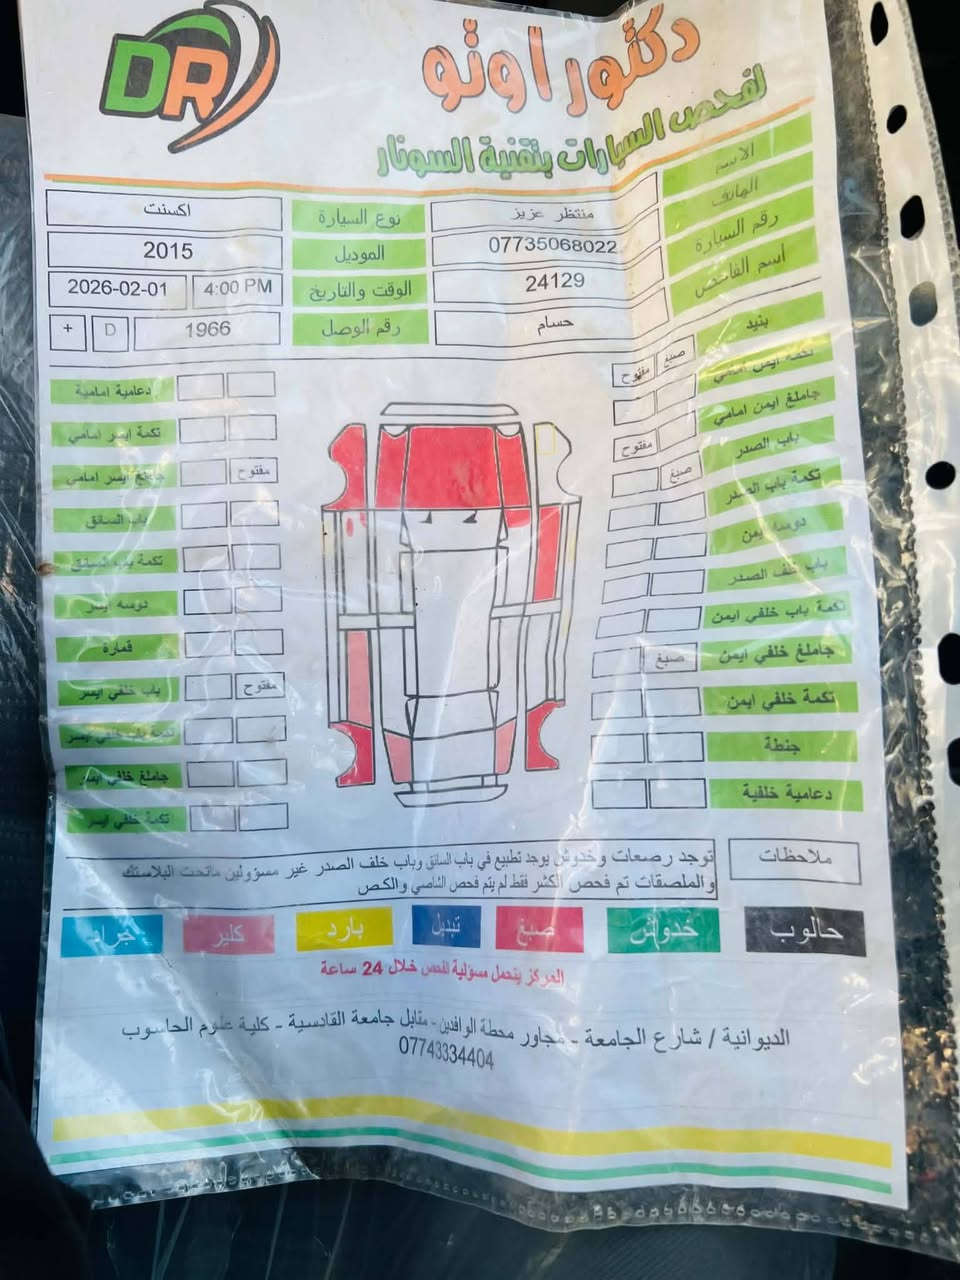 DR
دكتور اوتو
لفحص السيارات بتقنية السونار
الاسم
منتظر عزيز
نوع السيارة
اكسنت
الهاتف
07735068022
الموديل
2015
رقم السيارة
24129
الوقت والتاريخ
4:00 PM
2026-02-01
أسم الفاحص
حسام
رقم الوصل
1966
D
+
بنيد
صبغ
مفتوح
تكمة ايمن امامي
جاملغ ايمن امامي
مفتوح
باب الصدر
صبغ
تكمة باب الصدر
دوسة ايمن
باب خلف الصدر
تكمة باب خلفي ايمن
جاملغ خلفي ايمن
صبغ
تكمة خلفي ايمن
جنطة
دعامية خلفية
دعامية امامية
تكمة ايسر امامي
جاملغ ايسر امامي
مفتوح
باب السائق
تكمة باب السائق
دوسه يسر
قمارة
باب خلفي ايسر
مفتوح
تكمة باب خلفي ايسر
جاملغ خلفي ايسر
تكمة خلفي ايسر
ملاحظات
توجد رصعات وخدوش يوجد تطبيع في باب السائق وباب خلف الصدر غير مسؤولين ماتحت البلاستك
والملصقات تم فحص الكشر فقط لم يتم فحص الشاصي والكص
حالوب
خدوش
صبغ
تبديل
بارد
كلير
جراد
المركز يتحمل مسؤلية الفحص خلال 24 ساعة
الديوانية / شارع الجامعة - مجاور محطة الوافدين - مقابل جامعة القادسية - كلية علوم الحاسوب
07743334404